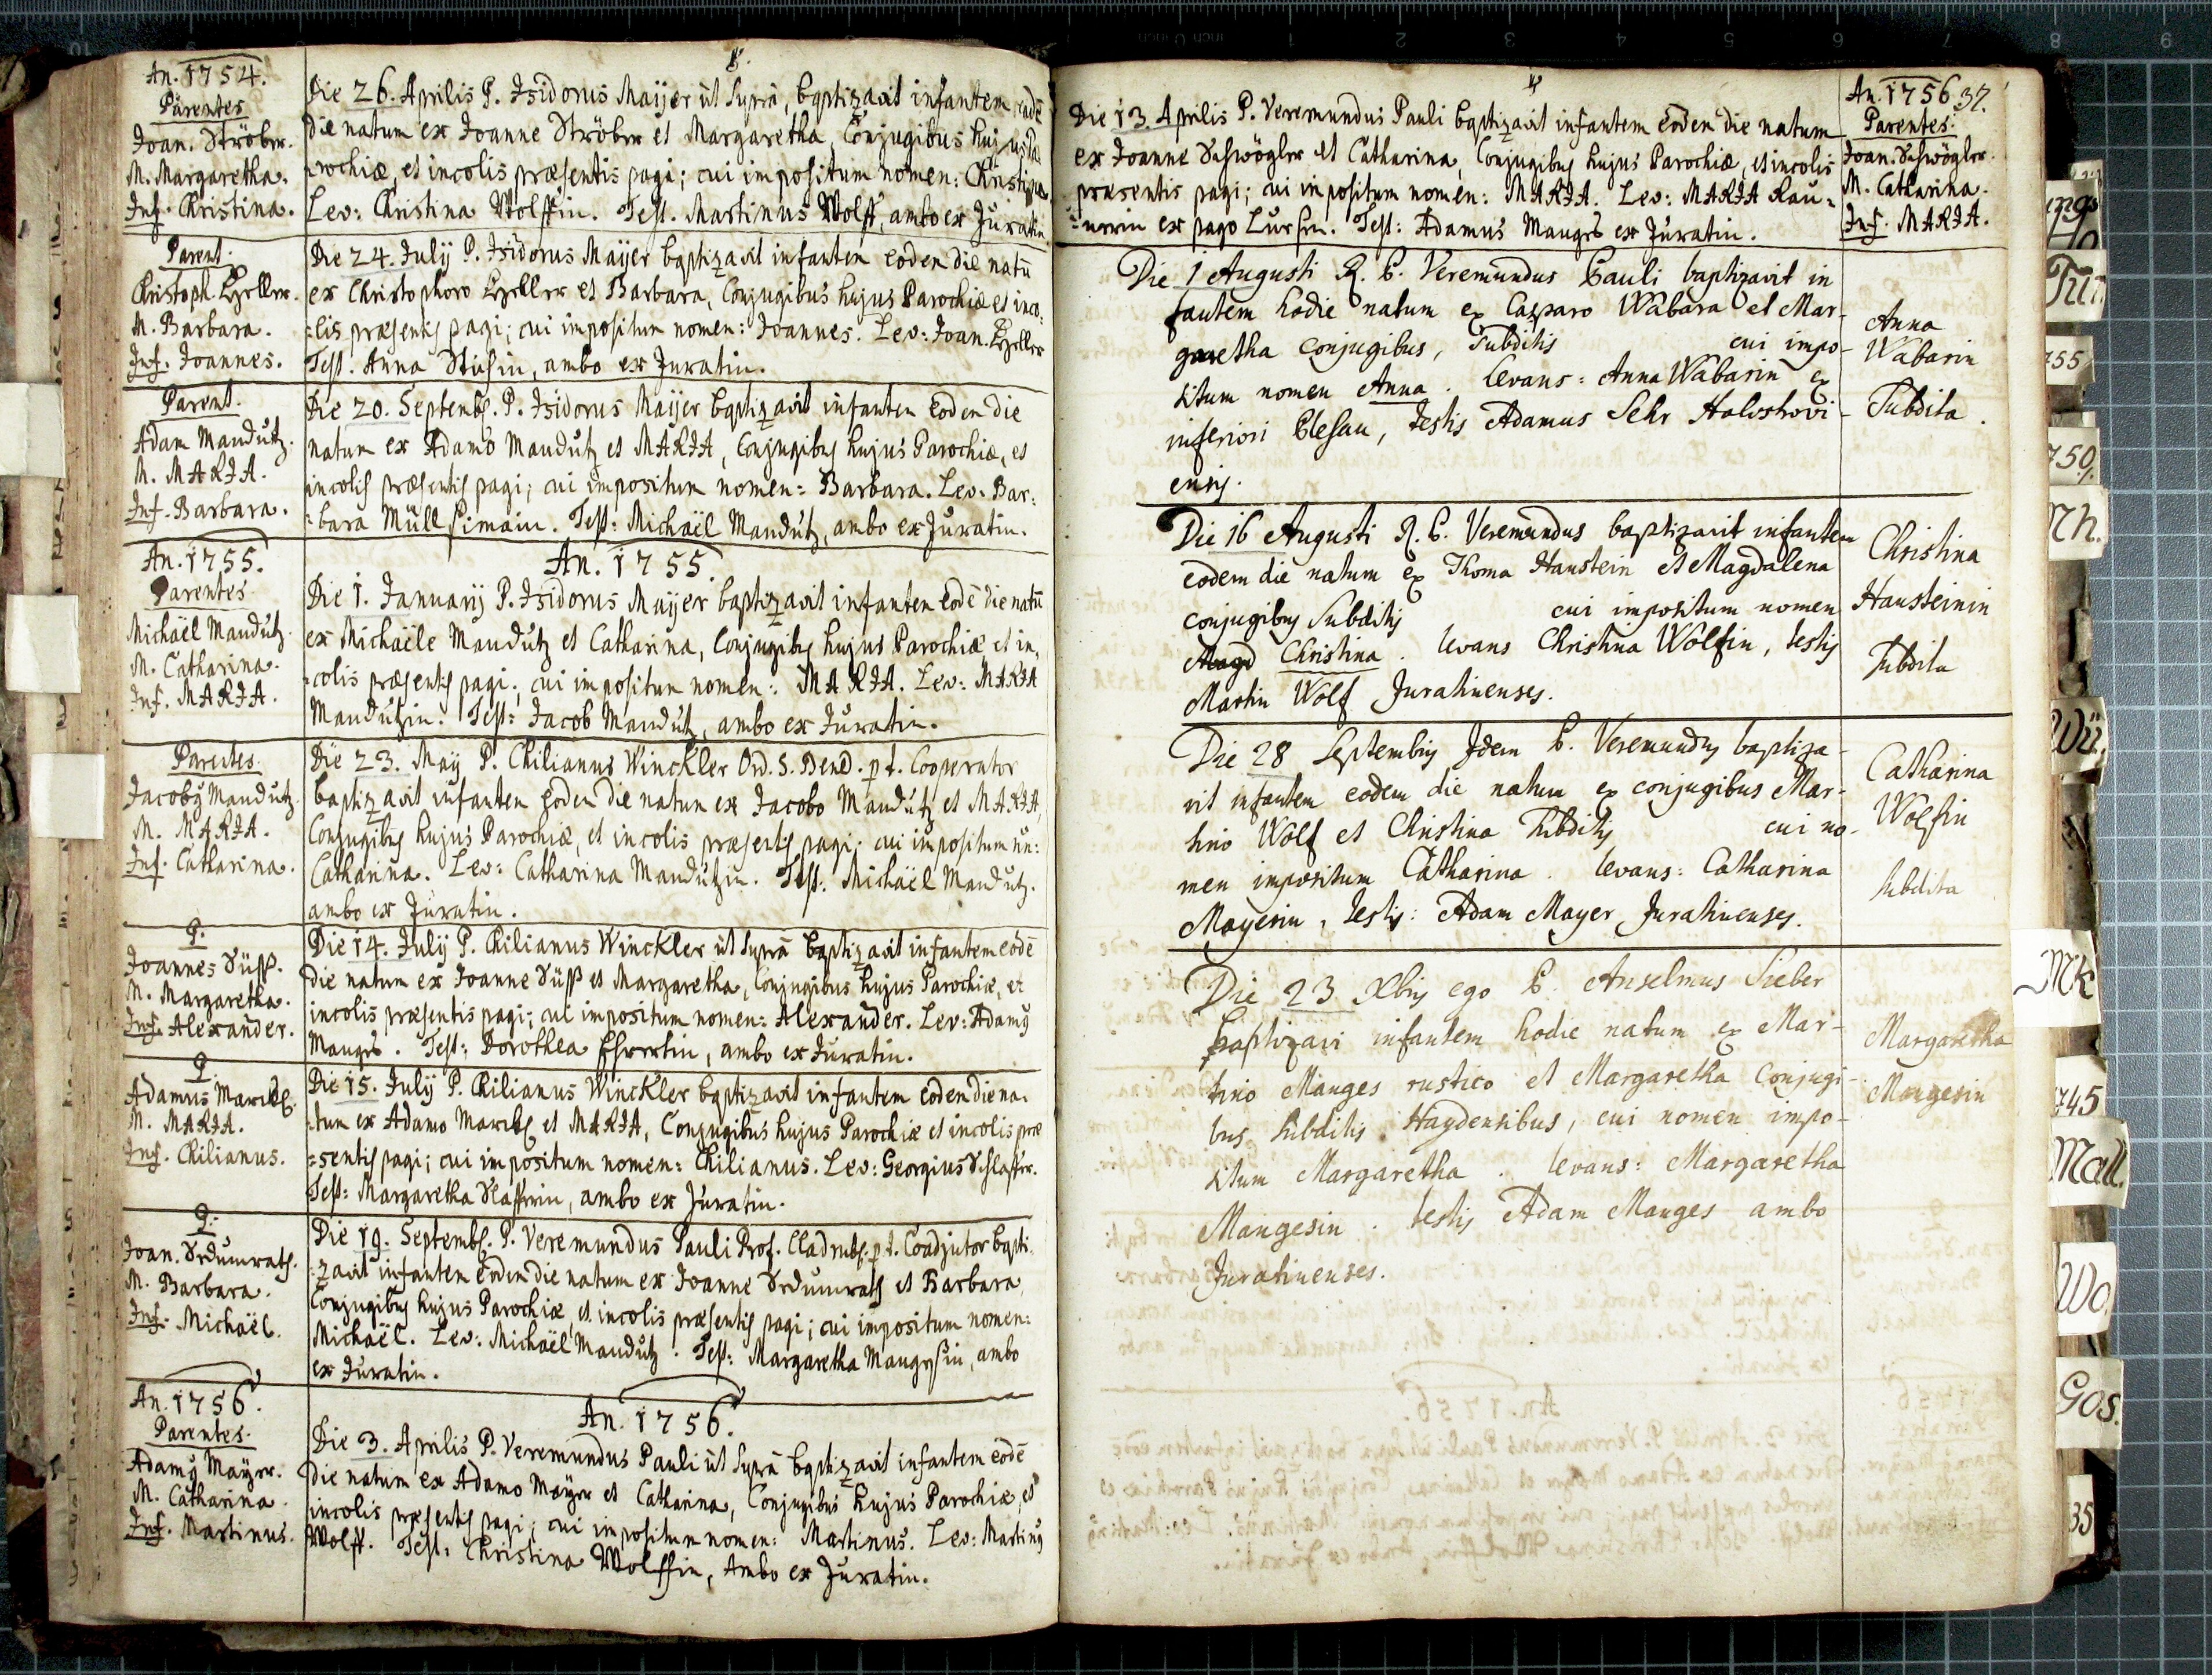 An. 1754.
Parentes
Joan. Ströber.
M. Margaretha.
Inf. Christina.
Die 26. Aprilis P. Isidorus Maijer ut supra, baptizavit infantem eadē
die natum ex Joanne Ströber et Margaretha, Conjugibus hujus Pa=
rochiæ, et incolis præsentis pagi; cui impositum nomen: Christina
Lev: Christina Wolffin. Test. Martinus Wolff, ambo ex Juratin.
Parent.
Christoph. Hzeller.
M. Barbara.
Inf. Joannes.
Die 24. July P. Isidorus Mayer baptizavit infantem eodem die natū
ex Christophoro et Barbara, Conjugibus hujus Parochiæ et inco=
=lis præsentis pagi; cui impositum nomen: Joannes. Lev: Joan.
Test. Anna ambo ex Juratin.
Parent.
Adam Mandutz.
M. MARIA.
Inf. Barbara.
Die 20. Septemb. P. Isidorus Maijer baptizavit infantem eodem die
natum ex Adamo Mandutz et MARIA, Conjugibus hujus Parochiæ, et
incolis præsentis pagi; cui impositum nomen: Barbara. Lev: Bar=
=bara Müll Test: Michaël Mandutz, ambo ex Juratin.
An. 1755.
Parentes
Michaël Mandutz.
M. Catharina.
Inf. MARIA.
An. 1755.
Die 1. Januarij P. Isidorus Mayer baptizavit infantem eodē die natū
ex Michaële Mandutz et Catharina, Conjugibus hujus Parochiæ et in=
=colis præsentis pagi; cui impositum nomen: MARIA. Lev: MARIA
Mandutzin. Test: Jacob Mandutz, ambo ex Juratin.
Parentes
Jacobus Mandutz.
M. MARIA.
Inf. Catharina.
Die 23. May P. Chilianus Winckler Ord. S. Bened. p.t. Cooperator
baptizavit infantem eodem die natum ex Jacobo Mandutz et MARIA,
Conjugibus hujus Parochiæ, et incolis præsentis pagi; cui impositum nn:
Catharina. Lev: Catharina Mandutzin. Test: Michaël Mandutz.
ambo ex Juratin.
P.
Joannes Süss.
M. Margaretha.
Inf. Alexander.
Die 14. July P. Chilianus Winckler ut supra baptizavit infantem eodē
die natum ex Joanne Süss et Margaretha, Conjugibus hujus Parochiæ, et
incolis præsentis pagi; cui impositum nomen: Alexander. Lev: Adamus
Manges. Test: Dorothea ambo ex Juratin.
P.
Adamus
M. MARIA.
Inf. Chilianus.
Die 15. July P. Chilianus Winckler baptizavit infantem eodem die na=
=tum ex Adamo et MARIA, Conjugibus hujus Parochiæ et incolis præ
=sentis pagi; cui impositum nomen: Chilianus. Lev: Georgius Schlaffer.
Test: Margaretha Slafferin, ambo ex Juratin.
P.
Joan.
M. Barbara.
Inf. Michaël.
Die 19. Septemb. P. Veremundus Pauli Prof. Cladrub. p.t. Coadjutor bapti=
=zavit infantem eodem die natum ex Joanne et Barbara,
Conjugibus hujus Parochiæ, et incolis præsentis pagi; cui impositum nomen:
Michaël. Lev: Michaël Mandutz. Test: Margaretha Mangesin, ambo
ex Juratin.
An. 1756.
Parentes.
Adamus Mayer.
M. Catharina.
Inf. Martinus.
An. 1756.
Die 3. Aprilis P. Veremundus Pauli ut supra baptizavit infantem eodē
die natum ex Adamo Mayer et Catharina, Conjugibus hujus Parochiæ, et
incolis præsentis pagi; cui impositum nomen: Martinus. Lev: Martinus
Wolff. Test: Christina Wolffin, Ambo ex Juratin.
An. 1756 37.
Parentes.
Joan. Schwögler.
M. Catharina.
Inf. MARIA.
Die 13. Aprilis P. Veremundus Pauli baptizavit infantem eodem die natum
ex Joanne Schwögler et Catharina, Conjugibus hujus Parochiæ, et incolis
præsentis pagi; cui impositum nomen: MARIA. Lev: MARIA Rau=
ex pago Test: Adamus Manges ex Juratin.
Die 1 Augusti R. P. Veremundus Pauli baptizavit in
fantem hodie natum ex Casparo Wabara et Mar-
garetha conjugibus, Subditis cui impo-
situm nomen Anna. levans: Anna Wabarin ex
inferiori Plesau, testis Adamus Sehr Holostovi-
ensis.
Anna
Wabarin
Subdita.
Die 16 Augusti R. P. Veremundus baptizavit infantem
eodem die natum ex Thoma Haustein et Magdalena
conjugibus Subditis cui impositum nomen
Magd Christina. levans Christina Wolfin, testis
Martin Wolf Juratinenses.
Christina
Hausteinin
Subdita
Die 28 Septembris Idem P. Veremundus baptiza-
vit infantem eodem die natum ex conjugibus Mar-
tino Wolf et Christina Subditis cui no-
men impositum Catharina. levans: Catharina
Mayerin, testis: Adam Mayer Juratinenses.
Catharina
Wolfin
Subdita
Die 23 Xbris ego P. Anselmus Sieber
baptizavi infantem hodie natum ex Mar-
tino Manges rustico et Margaretha conjugi-
bus Subditis Haydensibus, cui nomen impo-
situm Margaretha. levans: Margaretha
Mangesin. testis Adam Manges ambo
Juratinenses.
Margaretha
Mangesin
755
750
Nh.
Wü.
Mk
745
Mall.
Wo
Gos.
35